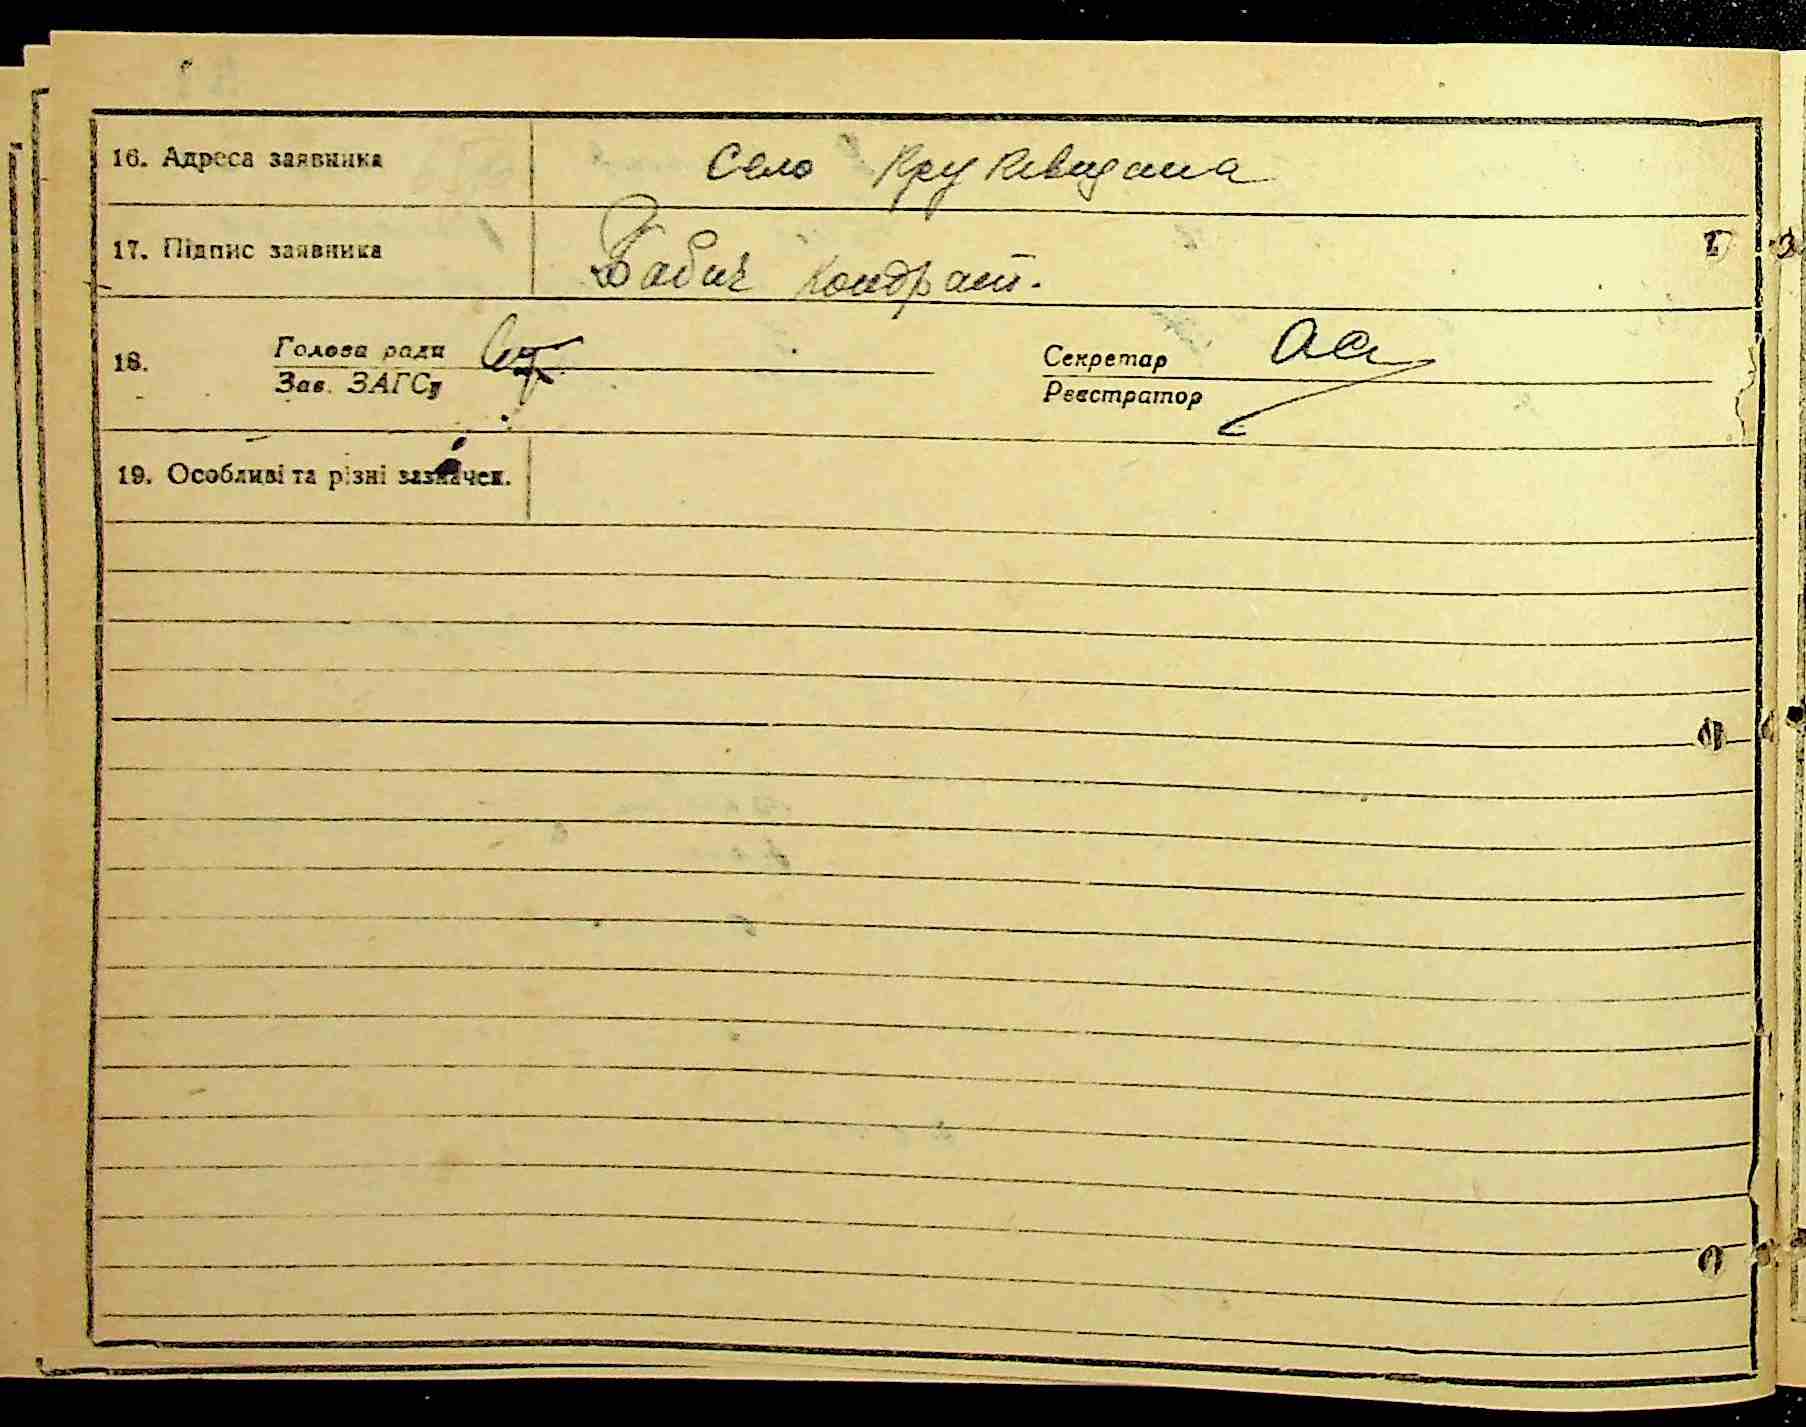 16. Адреса заявника Село
17. Підпис заявника Бабич Кондрат.
18. Голова ради Секретар
Зав. ЗАГСу Реєстратор
19. Особливі та різні зазначен.